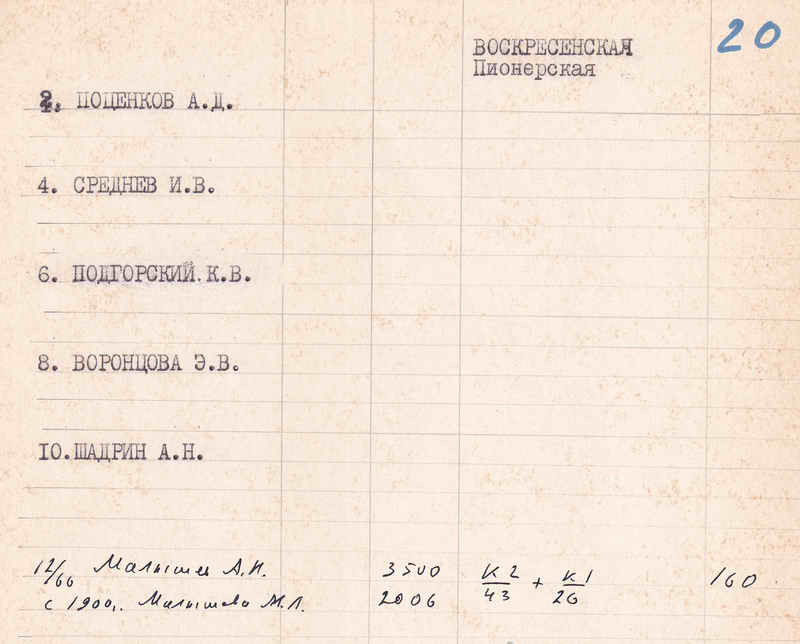 20
ВОСКРЕСЕНСКАЯ
Пионерская
2. ПОЦЕНКОВ А.Д.
4. СРЕДНЕВ И.В.
6. ПОДГОРСКИЙ К.В.
8. ВОРОНЦОВА Э.В.
10. ШАДРИН А.Н.
12/60 Малышев А.П. 3500 К2/43 + К1/26 160
с 1900г. Малышева М.Л. 2006